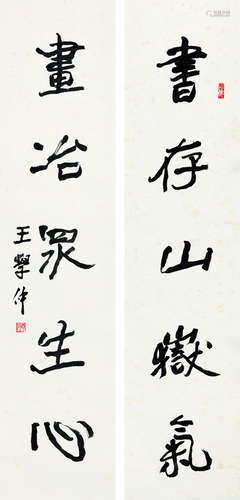 書存山嶽氣
畫冶眾生心
王學仲